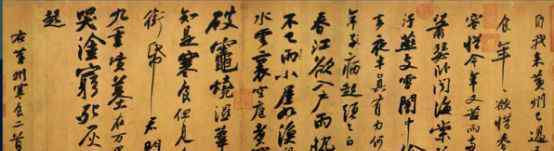 自我来黄州已過
食年〻欲惜春
容惜今年又苦雨
蕭瑟卧聞海棠
汙燕支雪闇中偷
去夜半真有力何
年子病起頭已白
春江欲入户雨勢
不已雨小屋如漁
水雲裏空庖煮
破竈燒濕葦
知是寒食但見
銜帋君門
九重墳墓在万
哭塗窮死灰
起
右黄州寒食二首